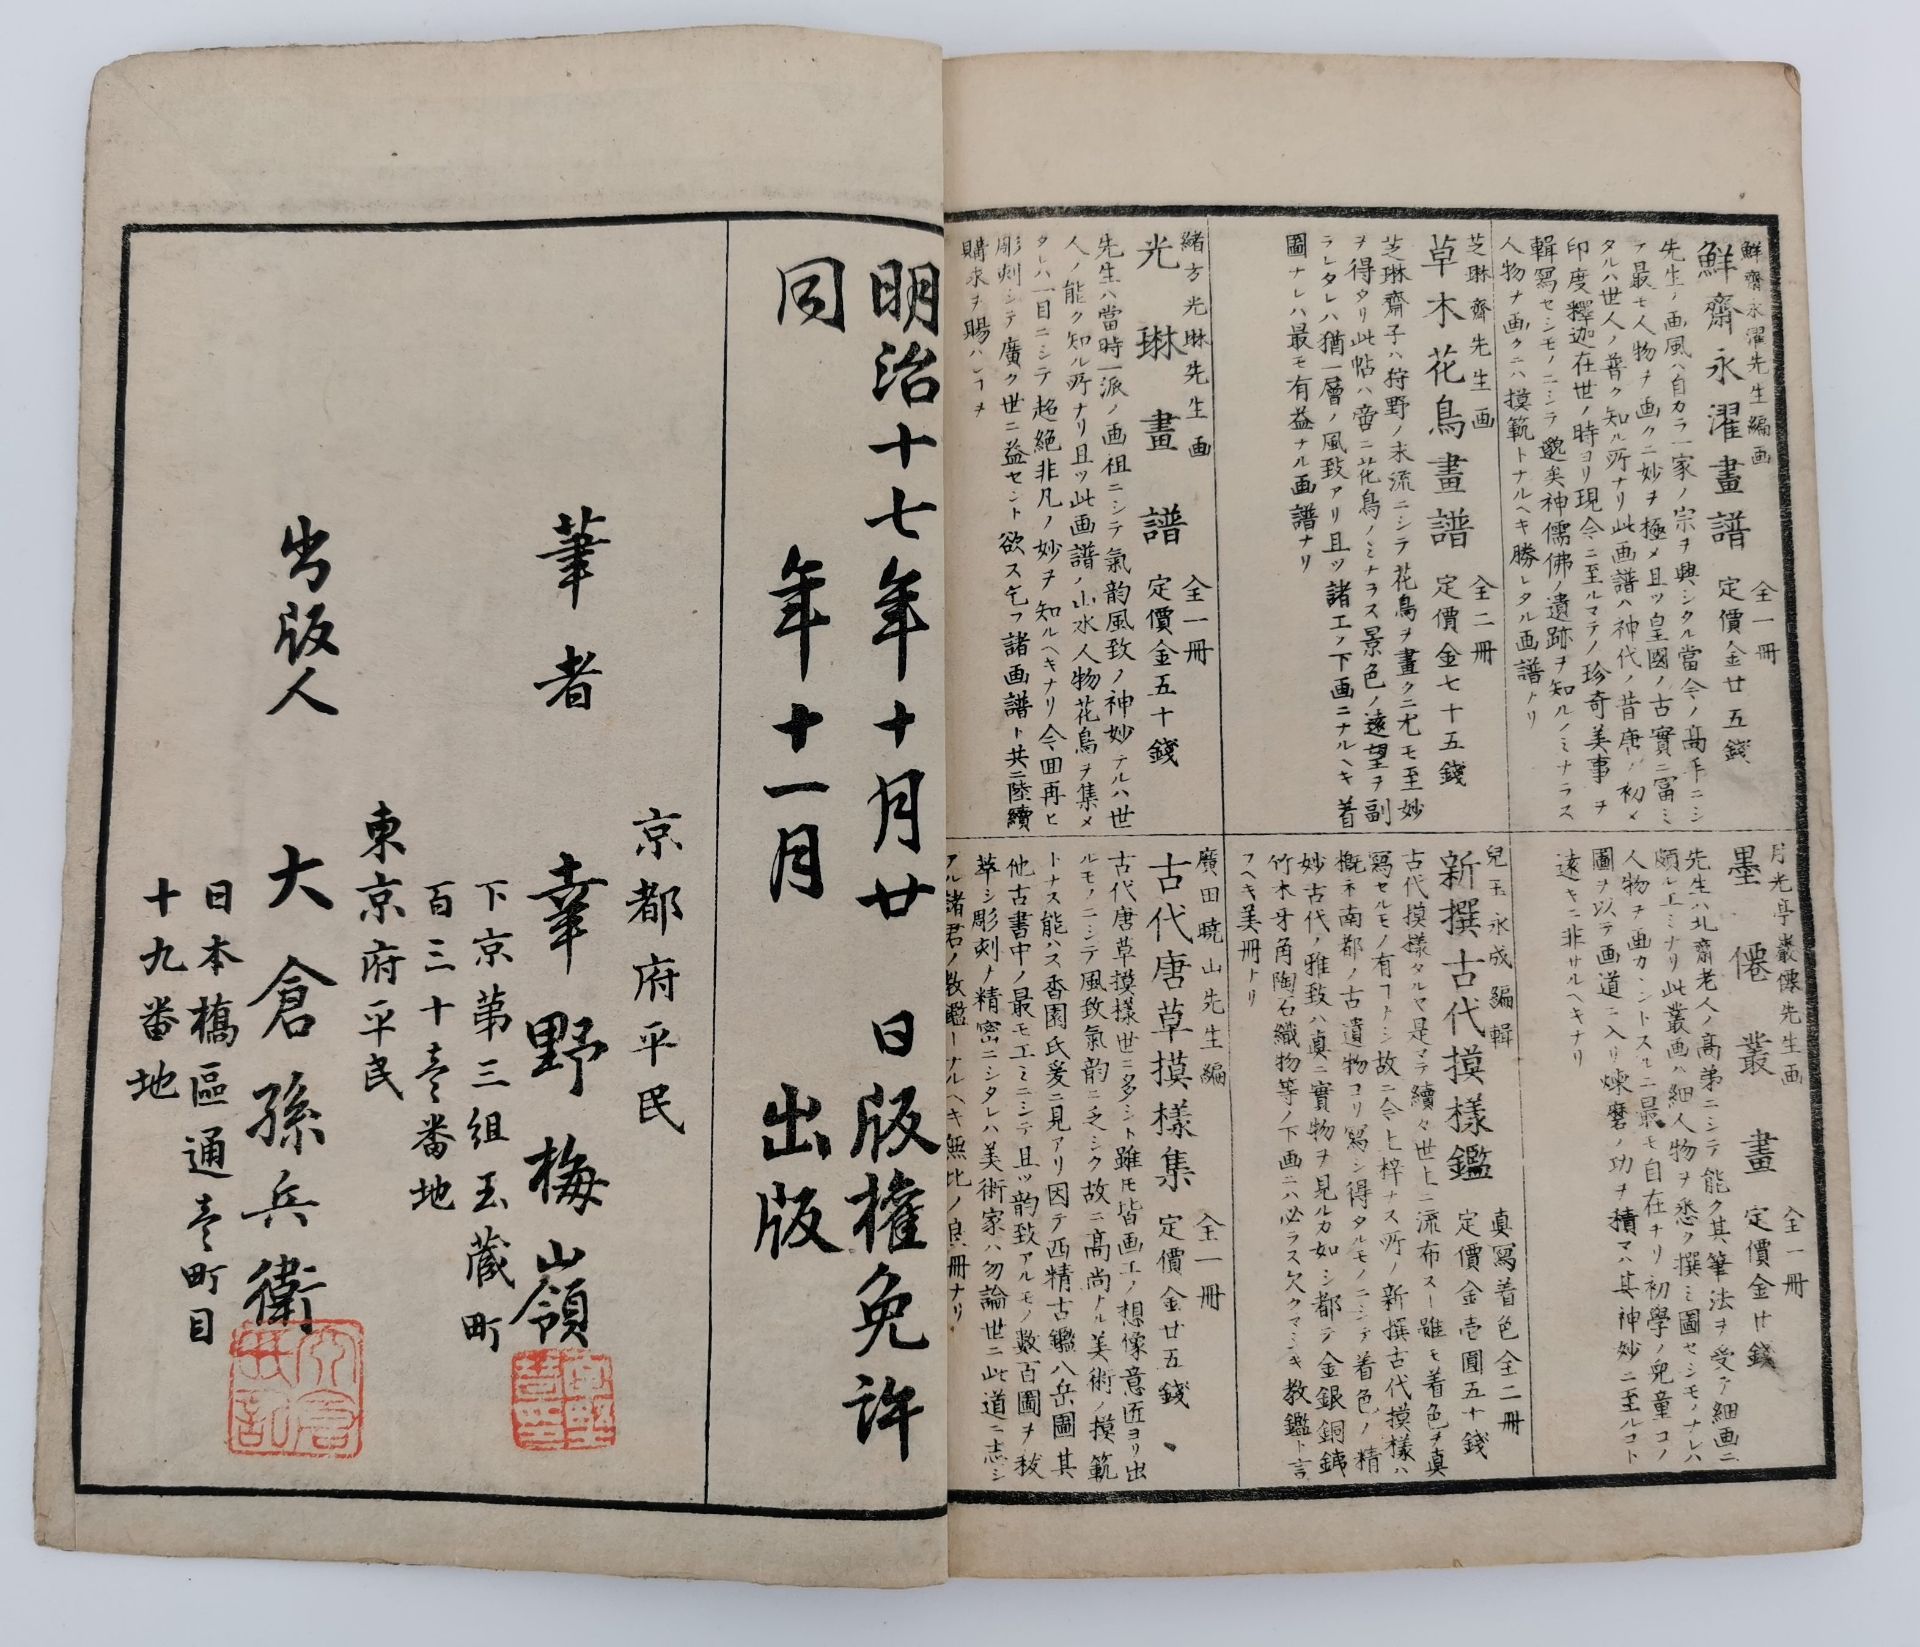 鮮齋永濯先生編画
鮮齋永濯畫譜 全一冊 定價金廿五錢
先生ノ画風ハ自カラ一家ノ宗ヲ興シタル當今ノ髙手ニシ
テ最モ人物ヲ画クニ妙ヲ極メ且ツ皇國ノ古實ニ富ミ
タルハ世人ノ普ク知ル所ナリ此画譜ハ神代ノ昔唐ノ初メ
印度釋迦在世ノ時ヨリ現今ニ至ルマテノ珍奇美事ヲ
輯寫セシモノニシテ 神儒佛ノ遺跡ヲ知ルノミナラス
人物ヲ画クニハ摸範トナルヘキ勝レタル画譜ナリ
芝琳齋先生画
草木花鳥畫譜 全二冊 定價金七十五錢
芝琳齋子ハ狩野ノ末流ニシテ花鳥ヲ畫クニ尤モ至妙
ヲ得タリ此帖ハ啻ニ花鳥ノミナラス景色ノ遠望ヲ副
ラレタレハ猶一層ノ風致アリ且ツ諸工ノ下画ニナルヘキ着
圖ナレハ最モ有益ナル画譜ナリ
緒方光琳先生画
光琳畫譜 全一冊 定價金五十錢
先生ハ當時一派ノ画祖ニシテ氣韵風致ノ神妙ナルハ世
人ノ能ク知ル所ナリ且ツ此画譜ノ山水人物花鳥ヲ集メ
タレハ一目ニシテ超絶非凡ノ妙ヲ知ルヘキナリ今回再ヒ
彫刻シテ廣ク世ニ益セント欲ス乞フ諸画譜ト共ニ陸續
購求ヲ賜ハレヿヲ
月光亭 僊先生画
墨僊叢畫 全一冊 定價金廿錢
先生ハ北齋老人ノ髙弟ニシテ能ク其筆法ヲ受テ細画ニ
頗ル工ミナリ此叢画ハ細人物ヲ悉ク撰ミ圖セシモノナレハ
人物ヲ画カントスルニ最モ自在ナリ初學ノ兒童コノ
圖ヲ以テ画道ニ入リ煉磨ノ功ヲ積マハ其神妙ニ至ルコト
遠キニ非サルヘキナリ
兒玉永成編輯
新撰古代摸樣鑑 真寫着色全二冊 定價金壱圓五十錢
古代摸樣タルヤ是マテ續々世上ニ流布スー雖モ着色ヲ真
寫セルモノ有ヿナシ故ニ今上梓ナス所ノ新撰古代摸樣ハ
概ネ南都ノ古遺物ヨリ寫シ得タルモノニシテ着色ノ精
妙古代ノ雅致ハ真ニ實物ヲ見ルカ如シ都テ金銀銅銕
竹木牙角陶石織物等ノ下画ニハ必ラス欠クマシキ教鑑ト言
フヘキ美冊ナリ
廣田暁山先生編
古代唐草摸樣集 全一冊 定價金廿五錢
古代唐草摸樣世ニ多シト雖モ皆画工ノ想像意匠ヨリ出
ルモノニシテ風致氣韵ニ乏シク故ニ髙尚ナル美術ノ摸範
トナス能ハス香園氏爰ニ見アリ因テ西精古鑑八岳圖其
他古書中ノ最モ工ミニシテ且ツ韵致アルモノ数百圖ヲ
萃シ彫刻ヲ精密ニシタレハ美術家ハ勿論世ニ此道ニ志シ
アル諸君ノ教鑑ーナルヘキ無比ノ良冊ナリ
明治十七年十月廿 日版權免許
同 年十一月 出版
京都府平民
筆者 幸野楳嶺
下京第三組玉蔵町
百三十壱番地
東京府平民
出版人 大倉孫兵衛
日本橋區通壱町目
十九番地